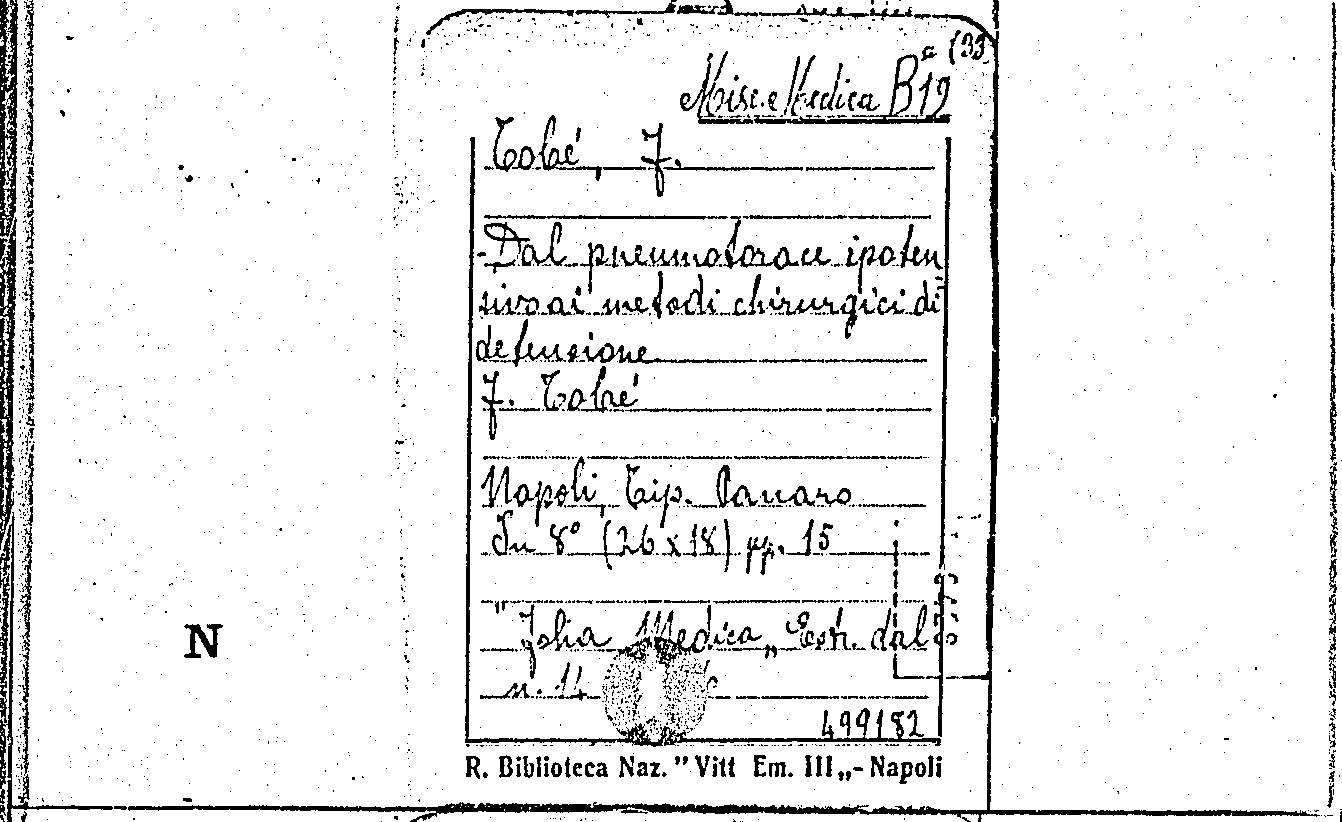 Misc. Medica B19 (33
Tobé, J.
- Dal pneumotorace ipoten
sivo ai metodi chirurgici di
detensione
J. Tobé
Napoli, Tip.
In 8° (26 x 18) pp. 15
" Medica „ Estr. dal
n. 14
499182
R. Biblioteca Naz. " Vitt Em. III „ - Napoli
N